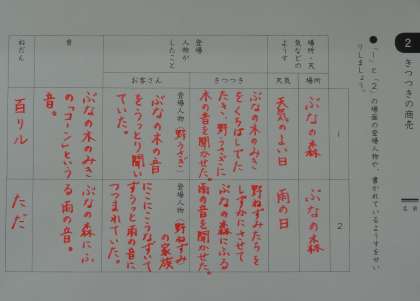 2
きつつきの商売
名前
●「1」と「2」の場面の登場人物や、書かれているようすをせい
りしましょう。
1
2
場所・天
気などの
ようす
場所
ぶなの森
ぶなの森
天気
天気のよい日
雨の日
登場
人物が
したこと
きつつき
ぶなの木のみき
をくちばしでた
たき、野うさぎに
木の音を聞かせた。
野ねずみたちを
しずかにさせて
ぶなの森にふる
雨の音を聞かせた。
お客さん
登場人物(野うさぎ)
ぶなの木の音
をうっとり聞い
ていた。
登場人物(野ねずみ
の家族
にこにこうなずいて
ずうっと雨の音に
つつまれていた。
音
ぶなの木のみき
の「コーン」という
音。
ぶなの森にふ
る雨の音。
ねだん
百リル
ただ